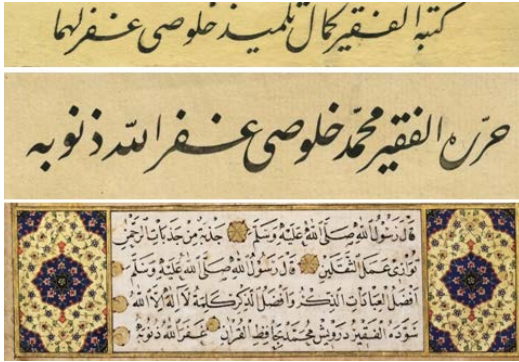 كتبه الفقير كمال تلميذ خلوصى غفر لهما
حرّره الفقير محمّد خلوصى غفر الله ذنوبه
قَالَ رَسُولُ اللهِ صَلَّى اللهُ عَلَيْهِ وَسَلَّمَ جَذْبَةٌ مِنْ جَذَبَاتِ الرَّحْمٰنِ
تُوَازِى عَمَلَ الثَّقَلَيْنِ قَالَ رَسُولُ اللهِ صَلَّى اللهُ عَلَيْهِ وَسَلَّمَ
اَفْضَلُ الْعِبَادَاتِ الذِّكْرُ وَاَفْضَلُ الذِّكْرِ كَلِمَةُ لَا اِلٰهَ اِلَّا اللهُ
سَوَّدَهُ الْفَقِيرُ دَرْوِيشْ مُحَمَّدْ حَافِظُ الْقُرْاٰنِ غَفَرَ اللهُ ذُنُوبَهُ